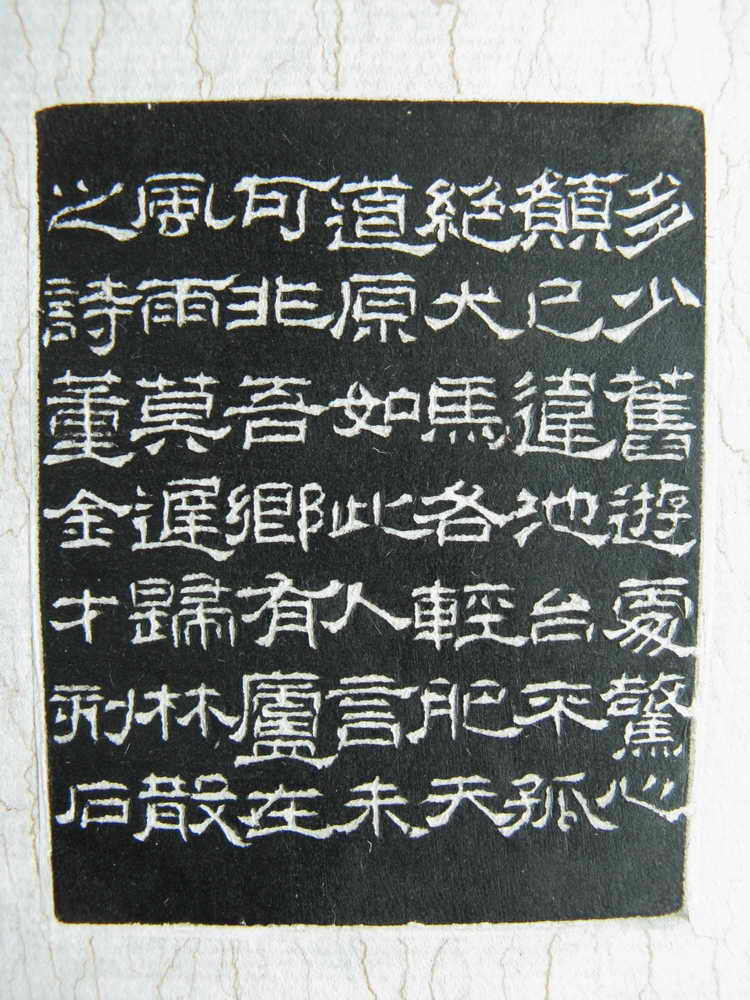 多少舊遊處驚心
願已違池台來孤
絕犬馬各輕肥天
道原如此人言未
可非吾鄉有廬在
風雨莫遲歸林散
之詩董金才刻石